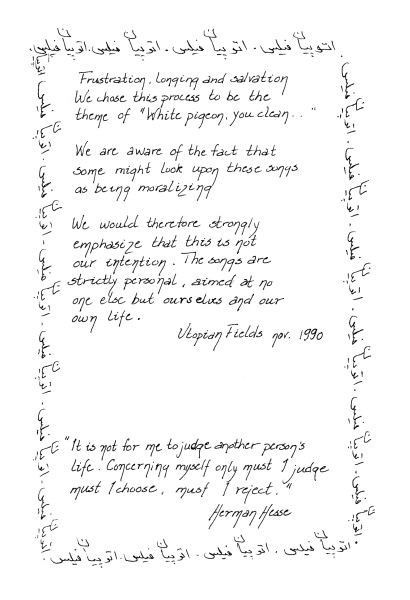 اتوبيان فيلس . اتوبيان فيلس . اتوبيان فيلس . اتوبيان فيلس .
Frustration, Longing and salvation
We chose this process to be the
theme of "White pigeon, you clean..."
We are aware of the fact that
some might look upon these songs
as being moralizing
We would therefore strongly
emphasize that this is not
our intention. The songs are
strictly personal, aimed at no
one else but ourselves and our
own life.
Utopian Fields nov. 1990
"It is not for me to judge another person's
life. Concerning myself only must I judge
must I choose, must I reject."
Herman Hesse
اتوبيان فيلس . اتوبيان فيلس . اتوبيان فيلس . اتوبيان فيلس .